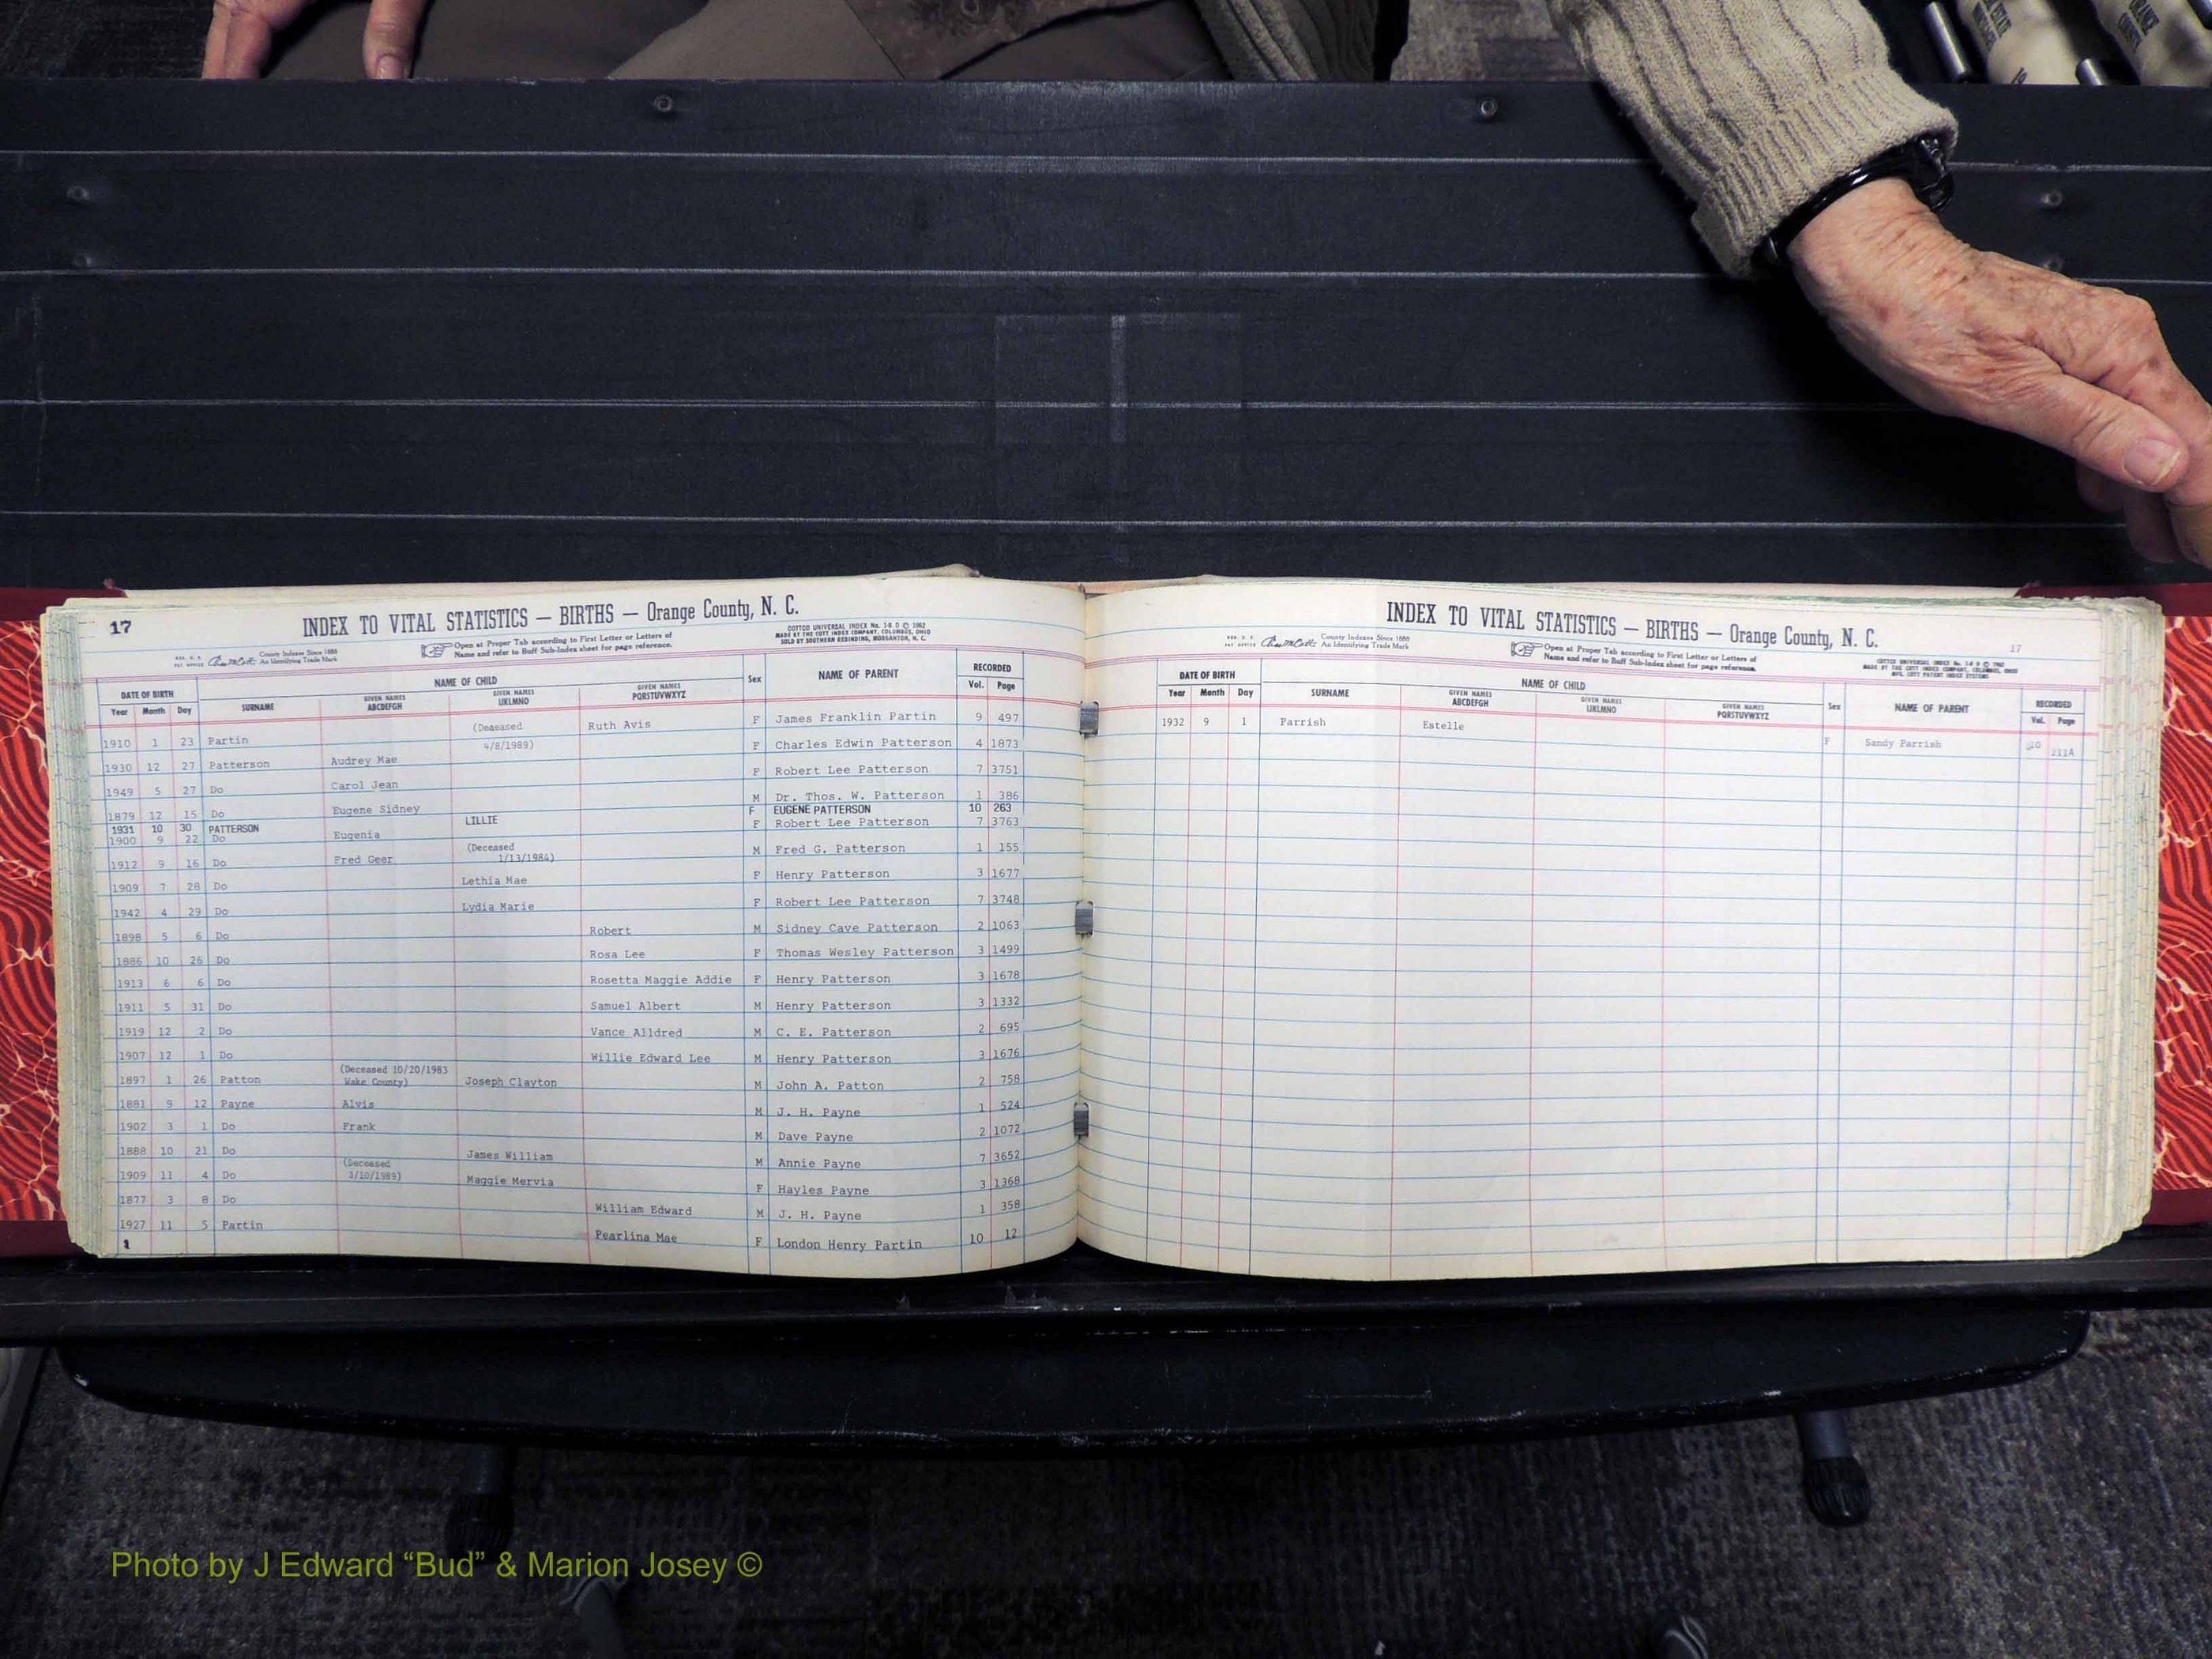 17
INDEX TO VITAL STATISTICS — BIRTHS — Orange County, N. C.
County Indexes Since 1888
An Identifying Trade Mark
Open at Proper Tab according to First Letter or Letters of
Name and refer to Buff Sub-Index sheet for page reference.
COTTCO UNIVERSAL INDEX No. 1-8 D © 1962
MADE BY THE COTT INDEX COMPANY, COLUMBUS, OHIO
SOLD BY SOUTHERN REBINDING, MORGANTON, N. C.
DATE OF BIRTH NAME OF CHILD Sex NAME OF PARENT RECORDED
Year Month Day SURNAME GIVEN NAMES ABCDEFGH GIVEN NAMES IJKLMNO GIVEN NAMES PQRSTUVWXYZ Vol. Page
1910 1 23 Partin (Deaeased 4/8/1989) Ruth Avis F James Franklin Partin 9 497
1930 12 27 Patterson Audrey Mae F Charles Edwin Patterson 4 1873
1949 5 27 Do Carol Jean F Robert Lee Patterson 7 3751
1879 12 15 Do Eugene Sidney M Dr. Thos. W. Patterson 1 386
1931 10 30 PATTERSON LILLIE F EUGENE PATTERSON 10 263
1900 9 22 Do Eugenia F Robert Lee Patterson 7 3763
1912 9 16 Do Fred Geer (Deceased 1/13/1984) M Fred G. Patterson 1 155
1909 7 28 Do Lethia Mae F Henry Patterson 3 1677
1942 4 29 Do Lydia Marie F Robert Lee Patterson 7 3748
1898 5 6 Do Robert M Sidney Cave Patterson 2 1063
1886 10 26 Do Rosa Lee F Thomas Wesley Patterson 3 1499
1913 6 6 Do Rosetta Maggie Addie F Henry Patterson 3 1678
1911 5 31 Do Samuel Albert M Henry Patterson 3 1332
1919 12 2 Do Vance Alldred M C. E. Patterson 2 695
1907 12 1 Do Willie Edward Lee M Henry Patterson 3 1676
1897 1 26 Patton (Deceased 10/20/1983 Wake County) Joseph Clayton M John A. Patton 2 758
1881 9 12 Payne Alvis M J. H. Payne 1 524
1902 3 1 Do Frank M Dave Payne 2 1072
1888 10 21 Do James William M Annie Payne 7 3652
1909 11 4 Do (Deceased 3/10/1989) Maggie Mervia F Hayles Payne 3 1368
1877 3 8 Do William Edward M J. H. Payne 1 358
1927 11 5 Partin Pearlina Mae F London Henry Partin 10 12
INDEX TO VITAL STATISTICS — BIRTHS — Orange County, N. C.
17
County Indexes Since 1888
An Identifying Trade Mark
Open at Proper Tab according to First Letter or Letters of
Name and refer to Buff Sub-Index sheet for page reference.
DATE OF BIRTH NAME OF CHILD Sex NAME OF PARENT RECORDED
Year Month Day SURNAME GIVEN NAMES ABCDEFGH GIVEN NAMES IJKLMNO GIVEN NAMES PQRSTUVWXYZ Vol. Page
1932 9 1 Parrish Estelle F Sandy Parrish 10 211A
Photo by J Edward “Bud” & Marion Josey ©